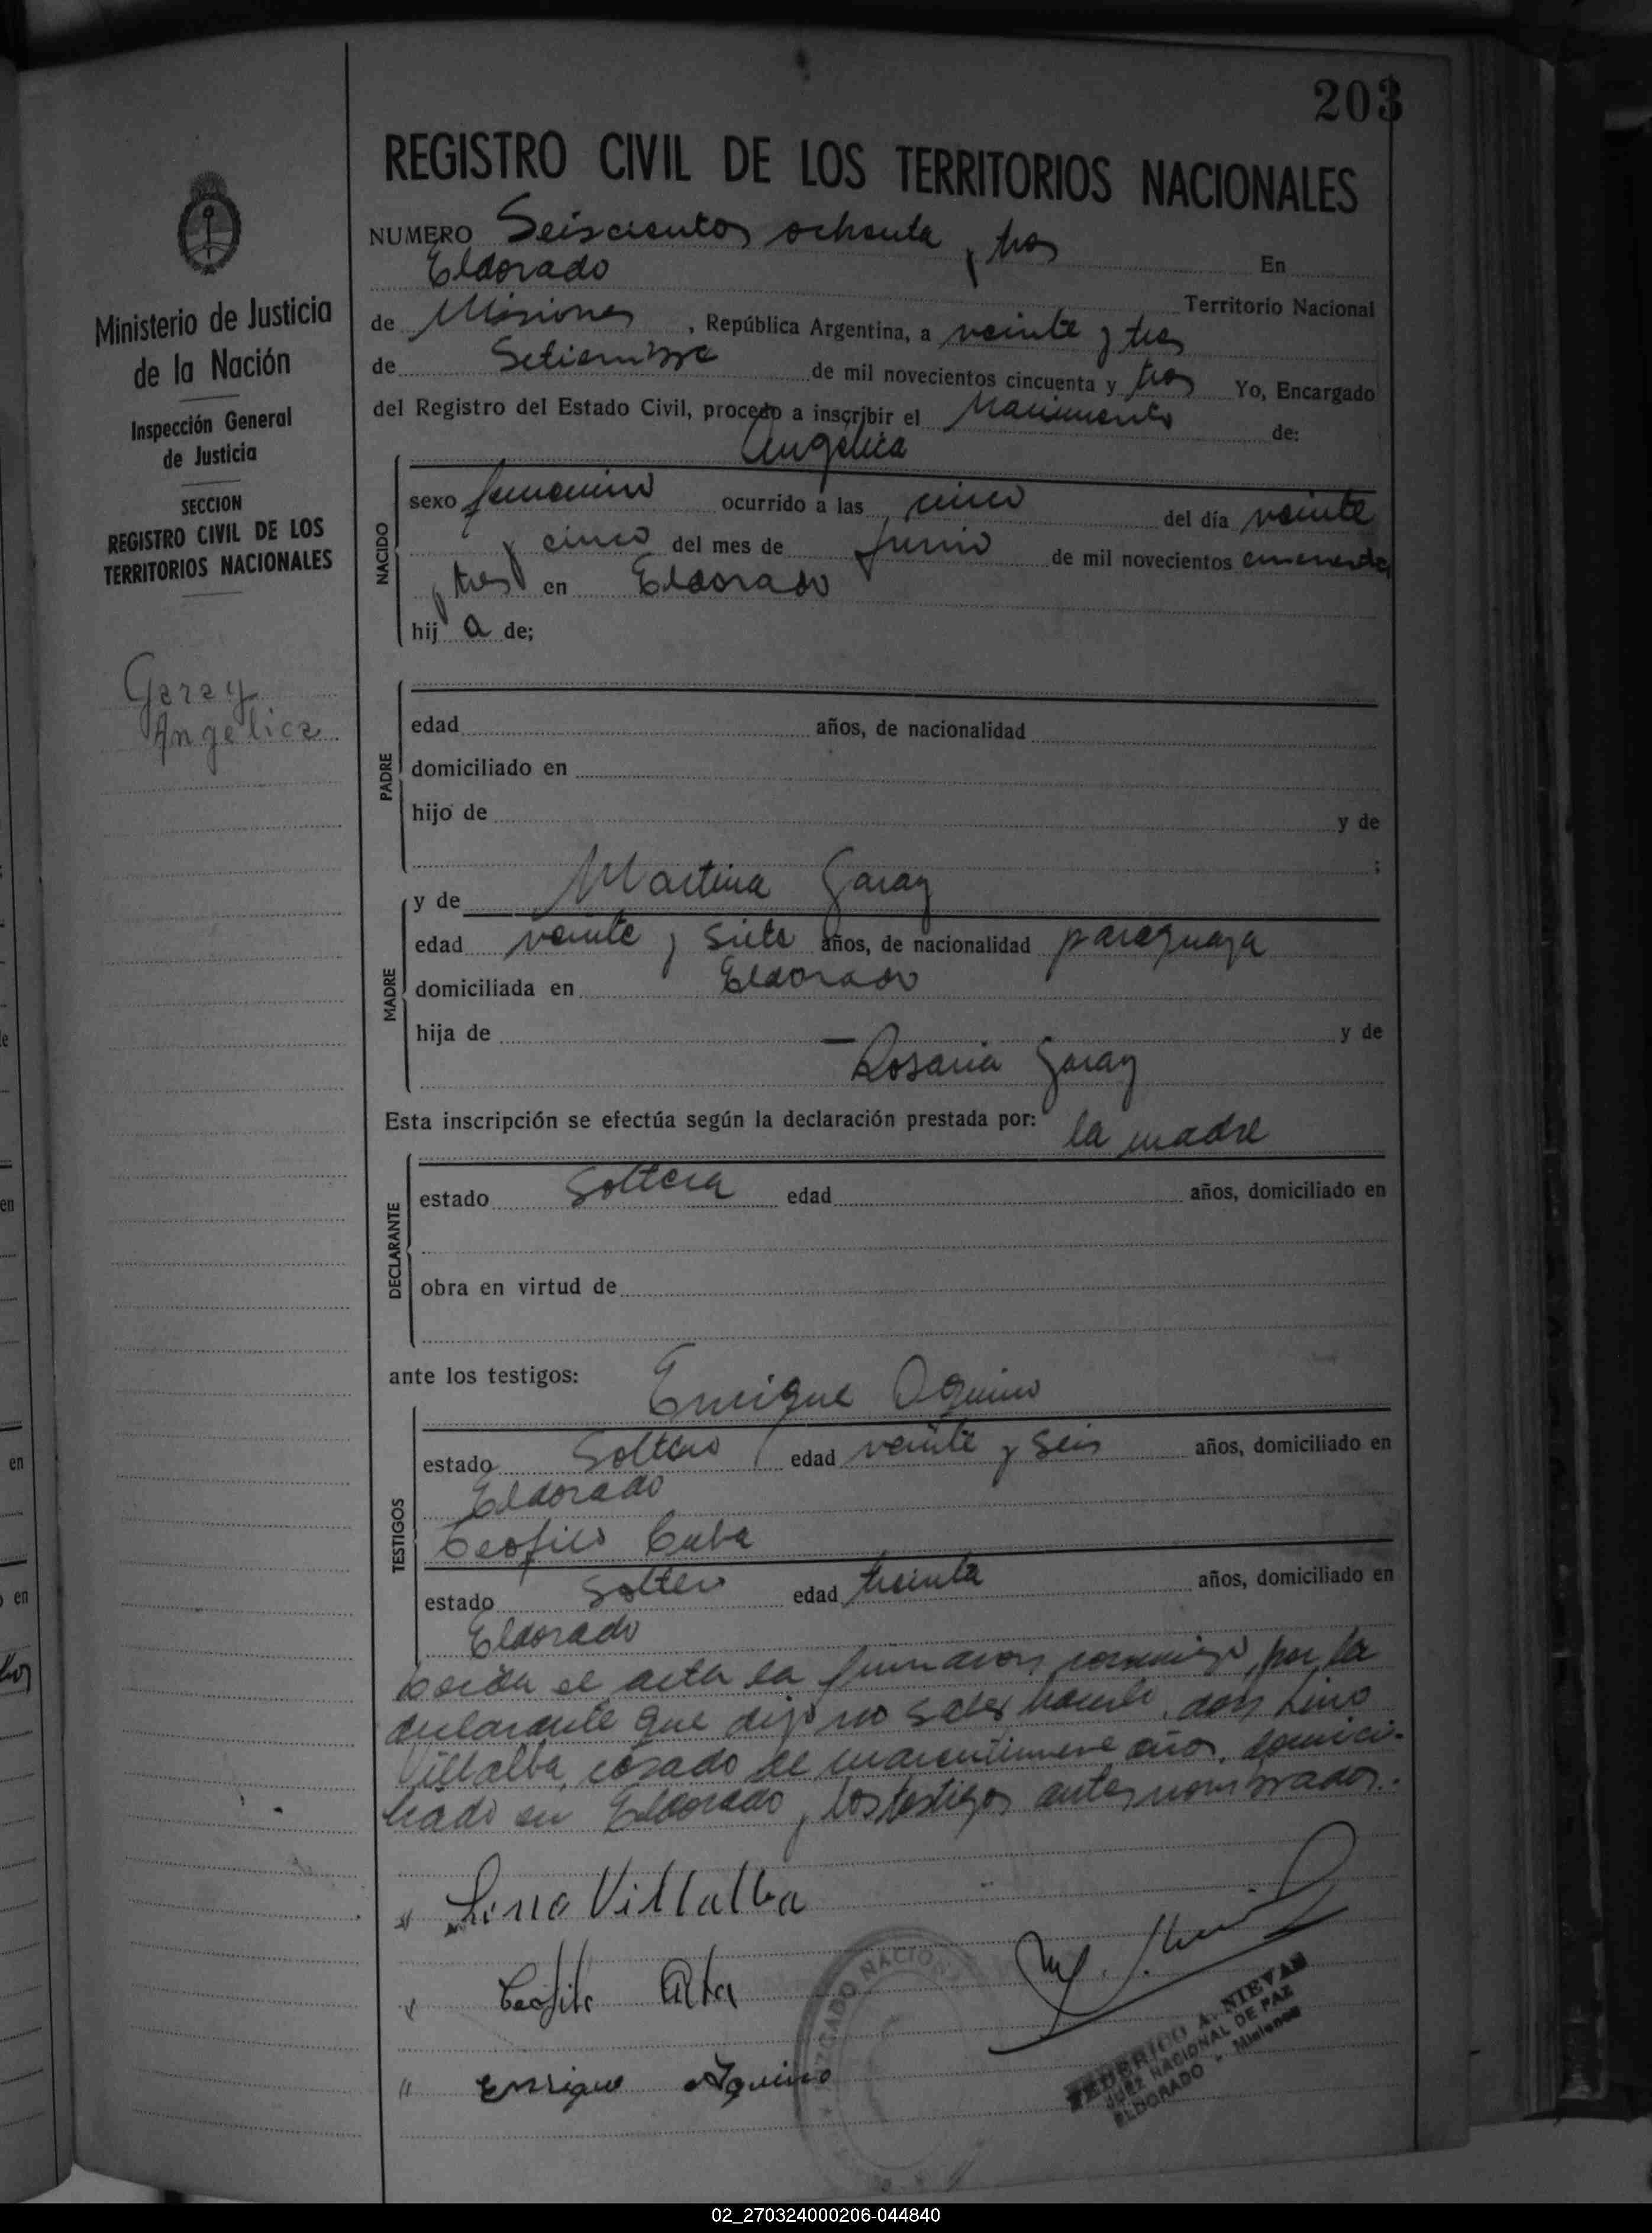 203
REGISTRO CIVIL DE LOS TERRITORIOS NACIONALES
NUMERO Seiscientos ochenta y tres En
Eldorado Territorio Nacional
de Misiones, República Argentina, a veinte y tres
de Setiembre de mil novecientos cincuenta y tres Yo, Encargado
del Registro del Estado Civil, procedo a inscribir el Nacimiento de:
Angélica
NACIDO
sexo femenino ocurrido a las cinco del día veinte
y cinco del mes de Junio de mil novecientos cincuenta
y tres en Eldorado
hij a de;
Ministerio de Justicia
de la Nación
Inspección General
de Justicia
SECCION
REGISTRO CIVIL DE LOS
TERRITORIOS NACIONALES
Garay
Angélica
PADRE
edad años, de nacionalidad
domiciliado en
hijo de y de
;
MADRE
y de Martina Garay
edad veinte y siete años, de nacionalidad paraguaya
domiciliada en Eldorado
hija de — y de
Rosaria Garay
Esta inscripción se efectúa según la declaración prestada por: la madre
DECLARANTE
estado Soltera edad años, domiciliado en
obra en virtud de
ante los testigos: Enrique Aquino
TESTIGOS
estado Soltero edad veinte y seis años, domiciliado en
Eldorado
Teofilo
estado Soltero edad treinta años, domiciliado en
Eldorado
Leida el acta la firmaron conmigo, por la
declarante que dijo no saber hacerlo, don Lino
Villalba, casado de años, domici-
liado en Eldorado y los testigos antes nombrados.-
Lino Villalba
Teofilo
Enrique Aquino
JUZGADO NACIONAL
FEDERICO A. NIEVAS
JUEZ NACIONAL DE PAZ
ELDORADO - Misiones
02_270324000206-044840